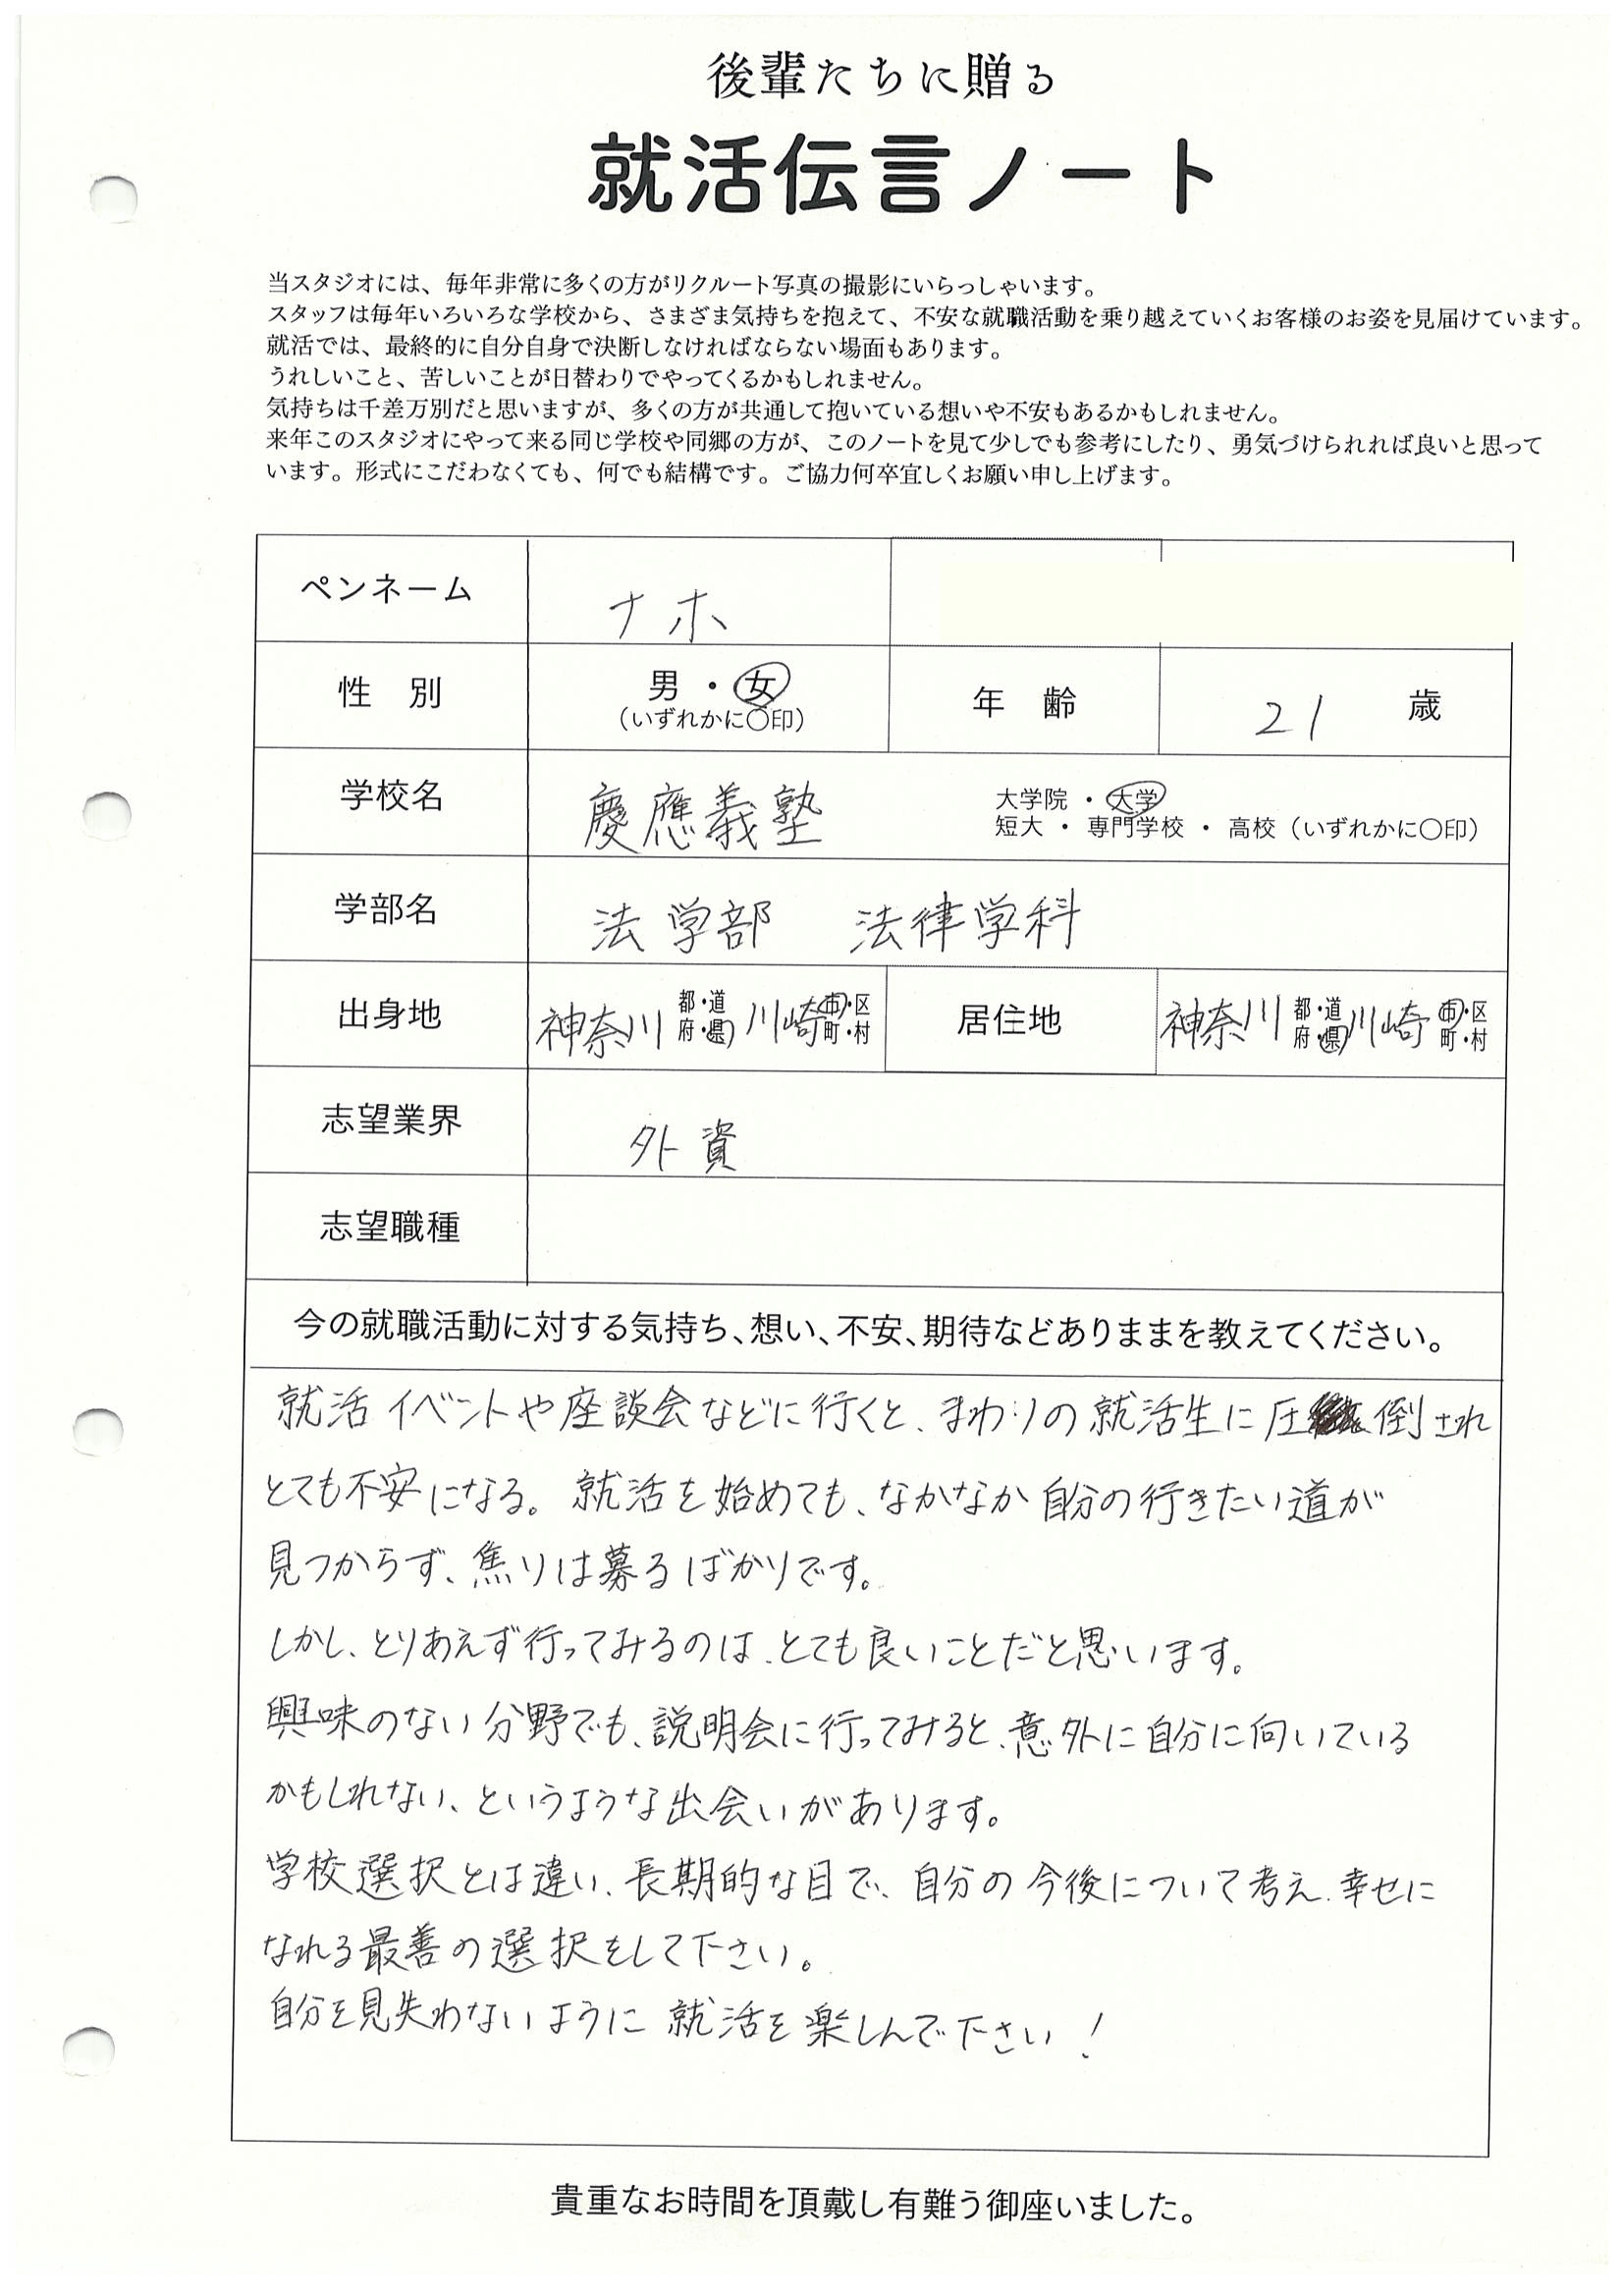 後輩たちに贈る
就活伝言ノート
当スタジオには、毎年非常に多くの方がリクルート写真の撮影にいらっしゃいます。
スタッフは毎年いろいろな学校から、さまざま気持ちを抱えて、不安な就職活動を乗り越えていくお客様のお姿を見届けています。
就活では、最終的に自分自身で決断しなければならない場面もあります。
うれしいこと、苦しいことが日替わりでやってくるかもしれません。
気持ちは千差万別だと思いますが、多くの方が共通して抱いている想いや不安もあるかもしれません。
来年このスタジオにやって来る同じ学校や同郷の方が、このノートを見て少しでも参考にしたり、勇気づけられれば良いと思って
います。形式にこだわなくても、何でも結構です。ご協力何卒宜しくお願い申し上げます。
ペンネーム ナホ
性 別 男 ・ 女 (いずれかに〇印) 年 齢 21 歳
学校名 慶應義塾 大学院 ・ 大学
短大 ・ 専門学校 ・ 高校 (いずれかに〇印)
学部名 法学部 法律学科
出身地 神奈川 都・道 府・県 川崎 市・区 町・村 居住地 神奈川 都・道 府・県 川崎 市・区 町・村
志望業界 外資
志望職種
今の就職活動に対する気持ち、想い、不安、期待などありままを教えてください。
就活イベントや座談会などに行くと、まわりの就活生に圧倒され
とても不安になる。就活を始めても、なかなか自分の行きたい道が
見つからず、焦りは募るばかりです。
しかし、とりあえず行ってみるのは、とても良いことだと思います。
興味のない分野でも、説明会に行ってみると、意外に自分に向いている
かもしれない、というような出会いがあります。
学校選択とは違い、長期的な目で、自分の今後について考え、幸せに
なれる最善の選択をして下さい。
自分を見失わないように就活を楽しんで下さい!
貴重なお時間を頂戴し有難う御座いました。